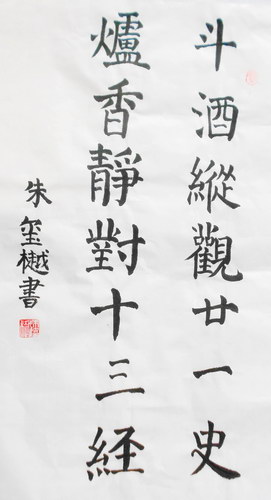 斗酒縱觀廿一史
爐香靜對十三経
朱玺樾書